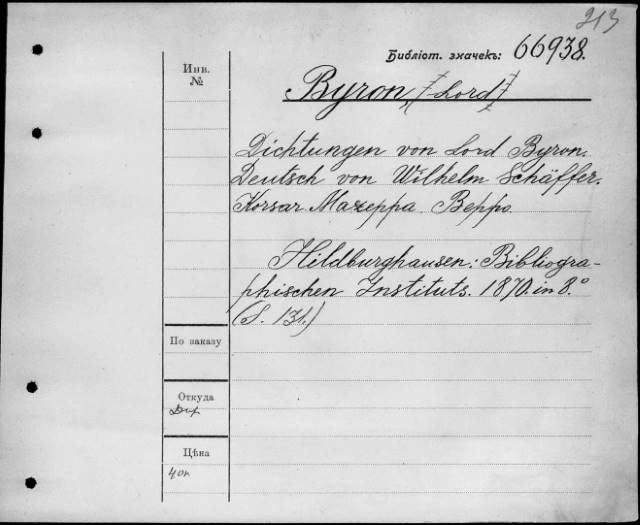 213
Библіот. значекъ: 66938.
Инв.
№
Byron, (Lord)
Dichtungen von Lord Byron.
Deutsch von Wilhelm Schäffer.
Korsar. Mazeppa. Beppo.
Hildburghausen: Bibliogra-
phischen Instituts. 1870. in 8.°
(S. 131.)
По заказу
Откуда
Цѣна
40к